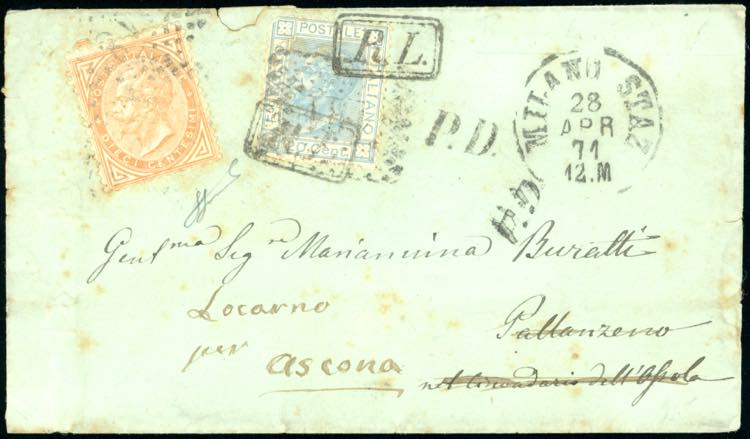 POSTALE ITALIANO
R.L.
DIECI CENTESIMI
P.D.
MILANO STAZ
28
APR
71
12.M
P.D.
Gent.ma Sig.ra Mariannina Buratti
Locarno
per
Ascona
Pallanzeno
nel Circondario dell'Ossola